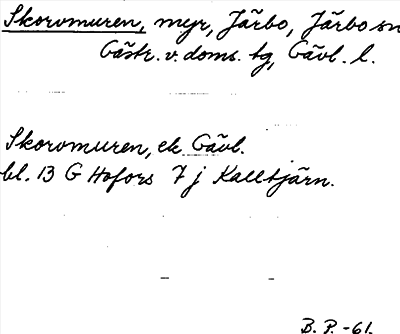 Skorvmuren, myr, Järbo, Järbo sn
Gästr. v. doms. tg, Gävl. l.
Skorvmuren, ek Gävl.
bl. 13 G Hofors 7 j Kalltjärn.
B. P. -61.